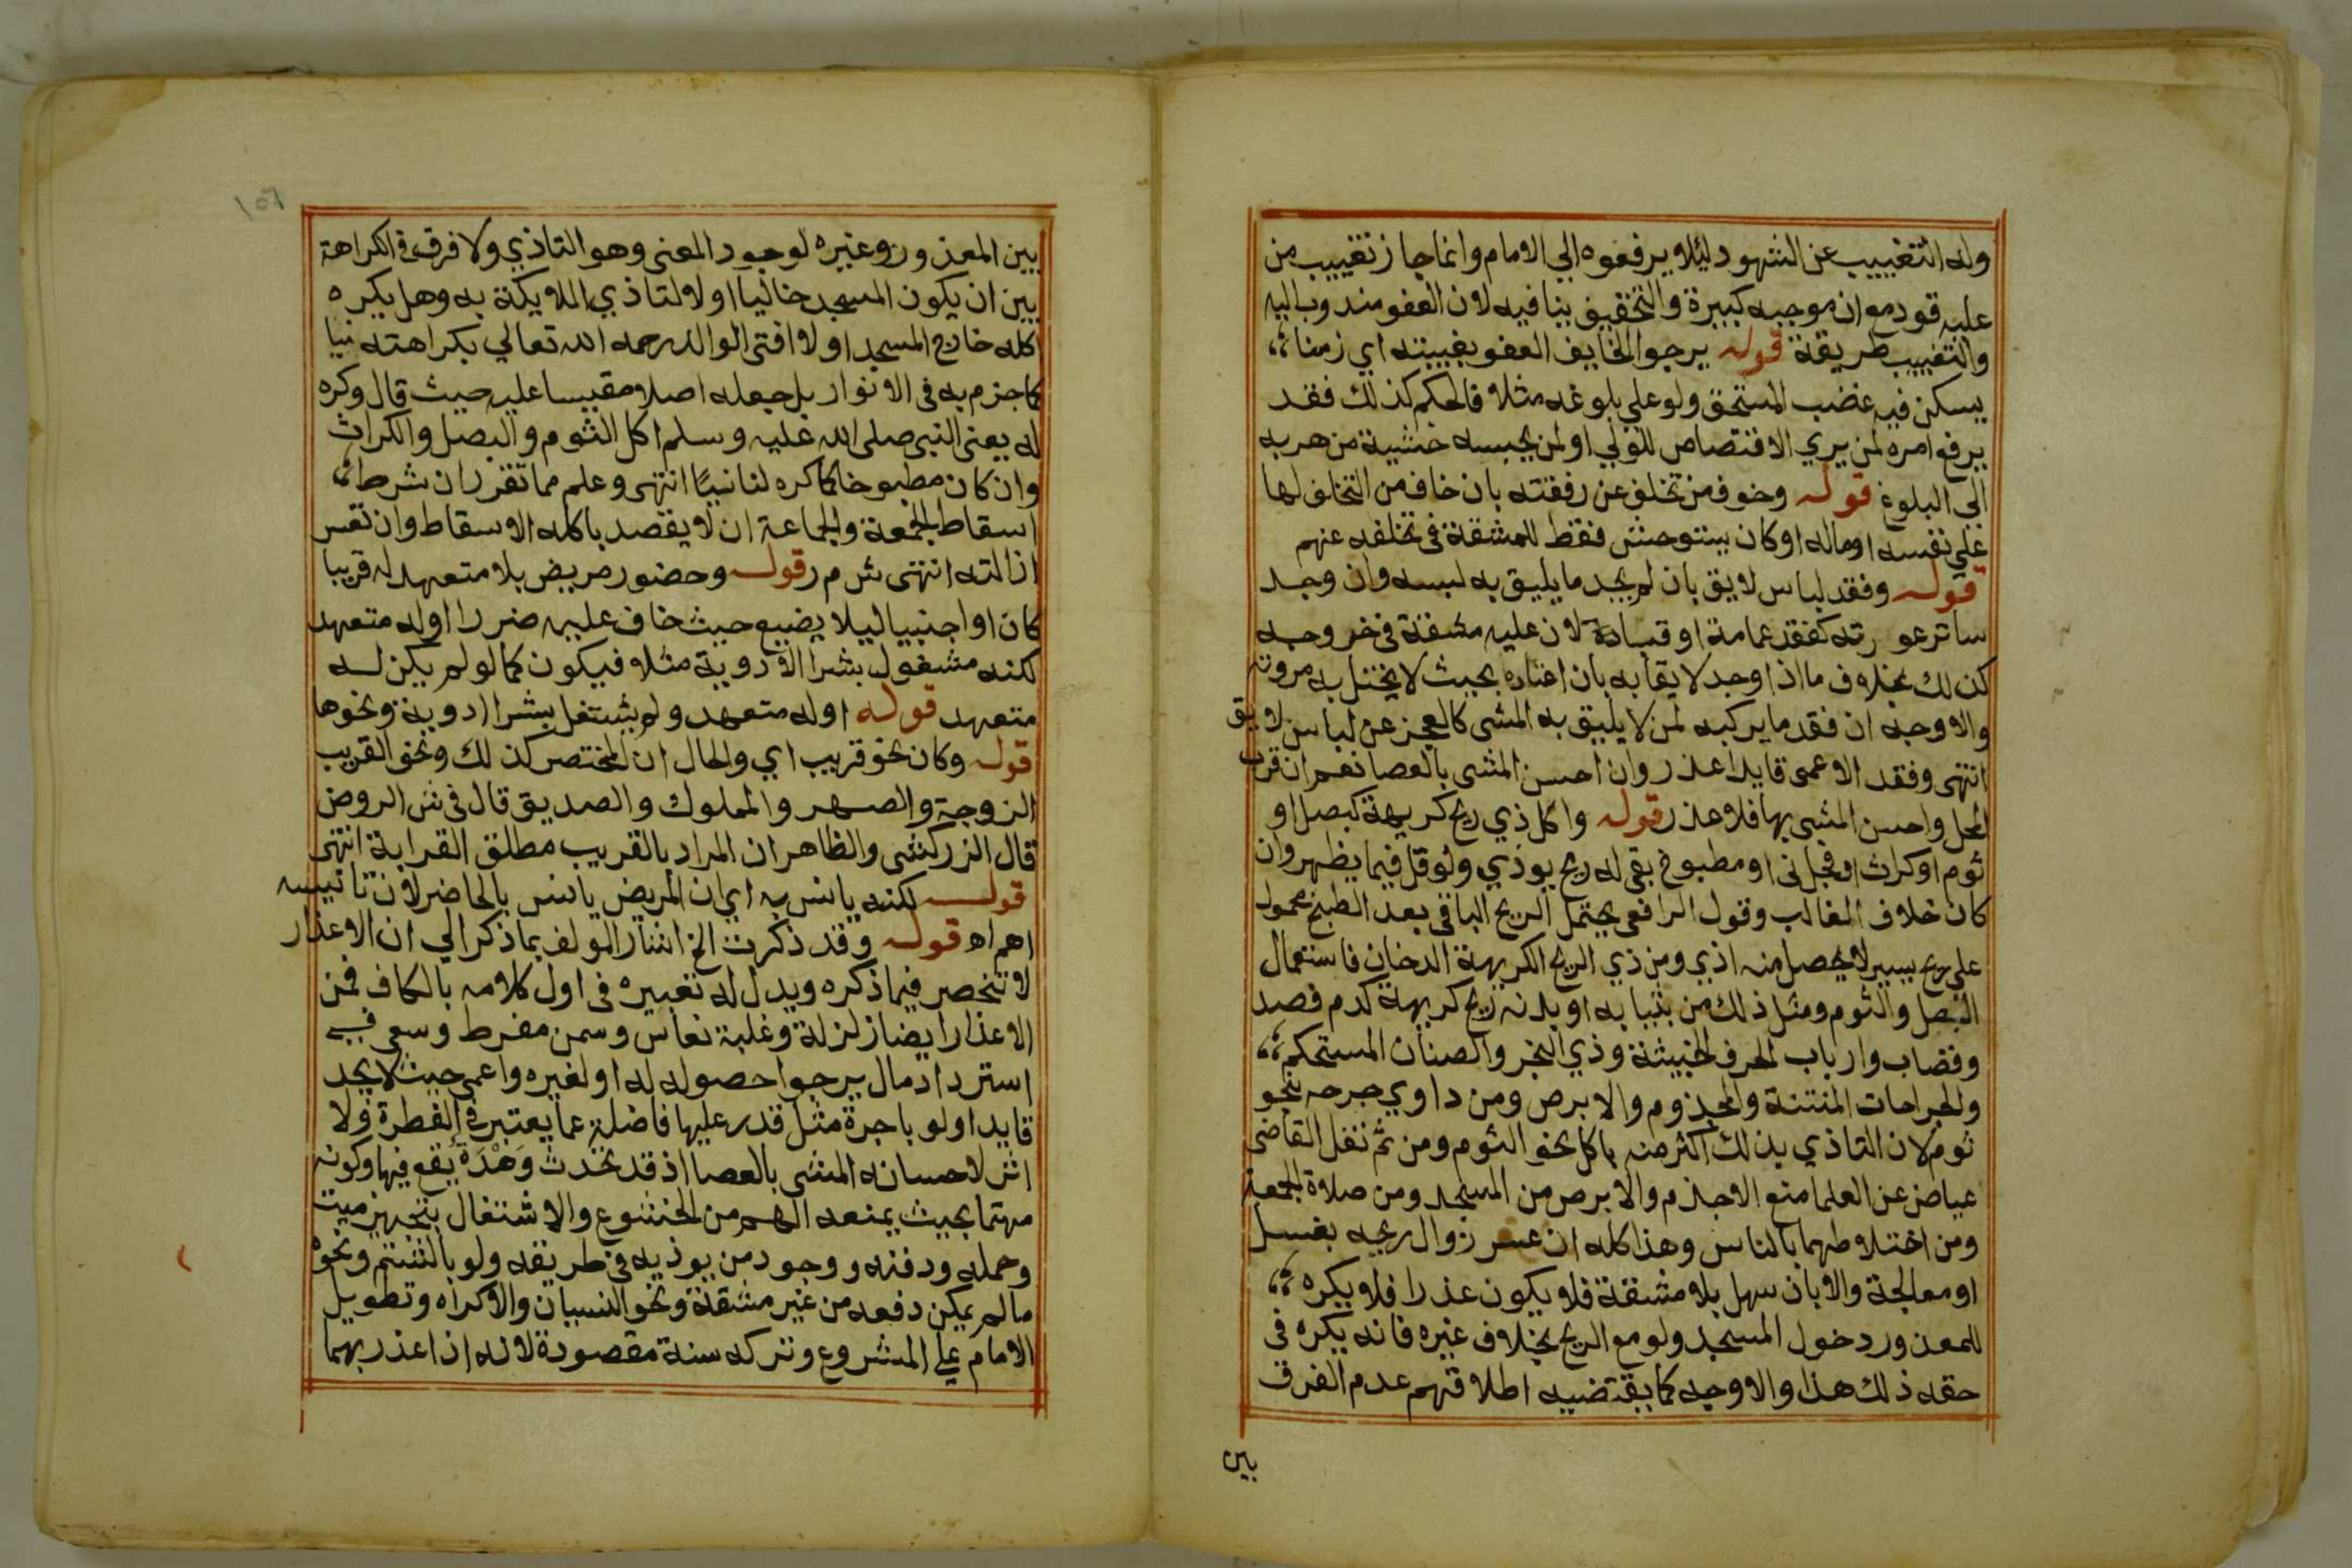 وله التغييب عن الشهود ليلا يرفعوه الي الامام وانما جاز تغييب من
عليه قود مع ان موجبه كبيرة والتخفيف ينافيه لان العفو مندوب اليه
والتغييب طريقة قوله يرجوا الخايف العفو بغيبته اي زمنا
يسكن فيه غضب المستحق ولو علي بلوغه مثلا فالحكم كذلك فقد
يرفع امره لمن يري الاقتصاص للولي او لمن يحبسه خشية من هربه
الى البلوغ قوله وخوف من تخلف عن رفقته بان خاف من التخلف لها
علي نفسه او ماله او كان يستوحش فقط للمشقة في تخلفه عنهم
قوله وفقد لباس لايق بان لم يجد ما يليق به لبسه وان وجد
ساتر عورته كفقد عمامة او قبا لان عليه مشقة في خروجه
كذلك بخلاف ما اذا وجد لايقا به بان اعتاده بحيث لا يختل به مروته
والاوجه ان فقد ما يركبه لمن لا يليق به المشى كالعجز عن لباس لايق
انتهى وفقد الاعمى قايدا عذر وان احسن المشى بالعصا نعم ان قرب
المحل واحسن المشى بها فلا عذر قوله واكل ذي ريح كريهة كبصل او
ثوم او كراث او فجل نى او مطبوخ بقي له ريح يوذي ولو قل فيما يظهر وان
كان خلاف الغالب وقول الرافعي يحتمل الريح الباقي بعد الطبخ محمول
علي ريح يسير لا يحصل منه اذي ومن ذي الريح الكريهة الدخان فاستعمال
البصل والثوم ومثل ذلك من بثيابه او بدنه ريح كريهة كدم فصد
وقصاب وارباب الحرف الخبيثة وذي البخر والصنان المستحكم
والجراحات المنتنة والمجذوم والابرص ومن داوي جرحه بنحو
ثوم لان التاذي بذلك اكثر منه باكل نحو الثوم ومن ثم نقل القاضى
عياض عن العلما منع الاجذم والابرص من المسجد ومن صلاة الجمعة
ومن اختلاطهما بالناس وهذا كله ان عسر زوال ريحه بغسل
او معالجة والا بان سهل بلا مشقة فلا يكون عذرا فلا يكره
للمعذور دخول المسجد ولو مع الريح بخلاف غيره فانه يكره في
حقه ذلك هذا والاوجه كما يقتضيه اطلاقهم عدم الفرق
بين
١٥٦
بين المعذور وغيره لوجود المعنى وهو التاذي ولا فرق في الكراهة
بين ان يكون المسجد خاليا او لا لتاذي الملايكة به وهل يكره
اكله خارج المسجد او لا افتى الوالد رحمه الله تعالي بكراهته نيا
كما جزم به في الانوار بل جعله اصلا مقيسا عليه حيث قال وكره
له يعنى النبي صلى الله عليه وسلم اكل الثوم والبصل والكراث
وان كان مطبوخا كما كره لنا نيا انتهى وعلم مما تقرر ان شرط
اسقاط الجمعة والجماعة ان لا يقصد باكله الاسقاط وان تعسر
ازالته انتهى ش م ر قوله وحضور مريض بلا متعهد له قريبا
كان او اجنبيا ليلا يضيع حيث خاف عليه ضررا او له متعهد
لكنه مشغول بشرا الادوية مثلا فيكون كما لو لم يكن له
متعهد قوله او له متعهد ولم يشتغل بشرا ادوية ونحوها
قوله وكان نحو قريب اي والحال ان المحتضر كذلك ونحو القريب
الزوجة والصهر والمملوك والصديق قال في ش الروض
قال الزركشى والظاهر ان المراد بالقريب مطلق القرابة انتهى
قوله لكنه يانس به اي ان المريض يانس بالحاضر لان تانيسه
اهم اه قوله وقد ذكرت الخ اشار المولف بما ذكر الي ان الاعذار
لا تنحصر فيما ذكره ويدل له تعبيره في اول كلامه بالكاف فمن
الاعذار ايضا زلزلة وغلبة نعاس وسمن مفرط وسعي في
استرداد مال يرجوا حصوله له او لغيره واعمى حيث لا يجد
قايدا ولو باجرة مثل قدر عليها فاضلة عما يعتبر في الفطرة ولا
اثر لاحسانه المشى بالعصا اذ قد تحدث وَهْدَة يقع فيها وكونه
مهتما بحيث يمنعه الهم من الخشوع والاشتغال بتجهيز ميت
وحمله ودفنه ووجود من يوذيه في طريقه ولو بالشتم ونحوه
ما لم يمكن دفعه من غير مشقة ونحو النسيان والاكراه وتطويل
الامام علي المشروع وتركه سنة مقصودة لانه اذا عذر بهما